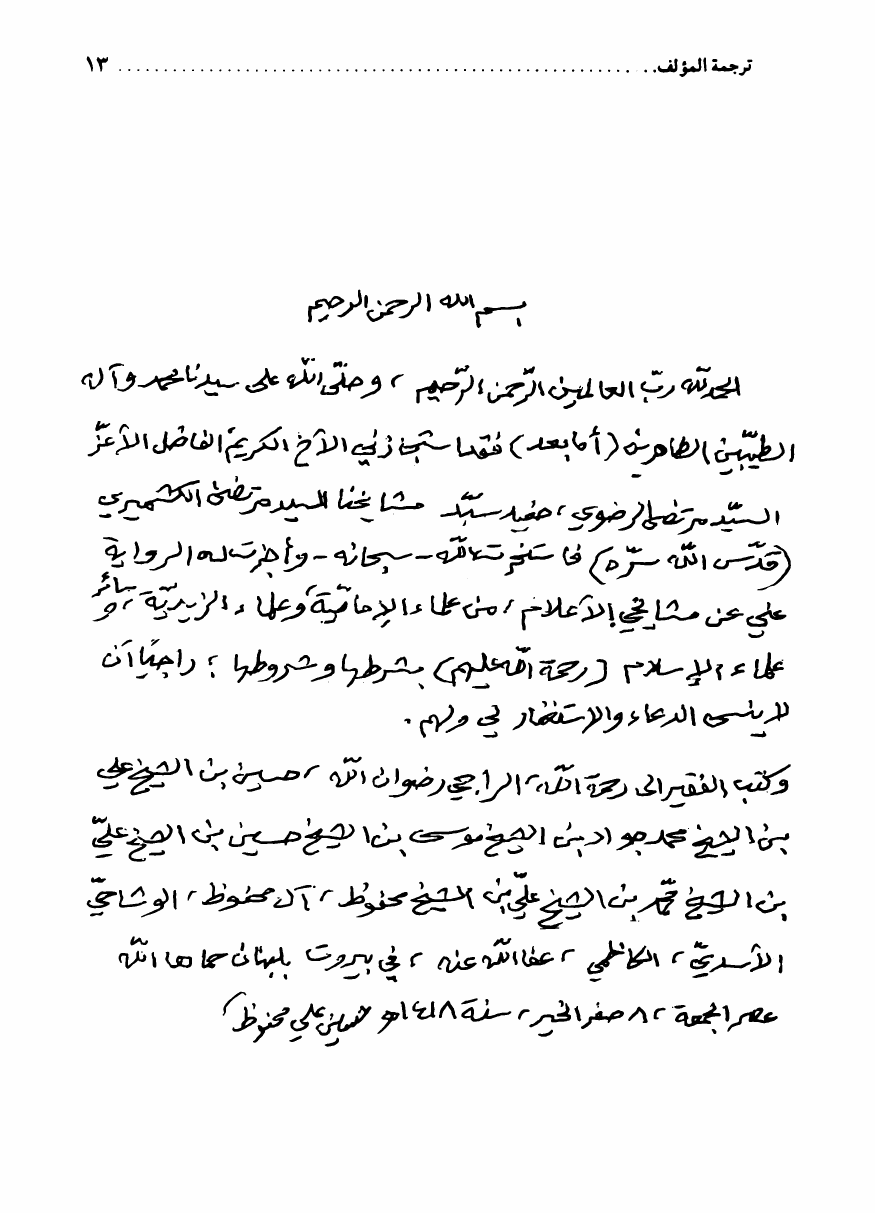 ترجمة المؤلف ........................................................ ١٣
بسم الله الرحمن الرحيم
الحمد لله ربّ العالمين الرّحمن الرّحيم ، وصلّى الله على سيدنا محمد وآله
الطيّبين الطاهرين (أما بعد) فقد استجازني الأخ الكريم الفاضل الأعزّ
السيّد مرتضى الرضوي ، حفيد سيّد مشايخنا السيد مرتضى الكشميري
(قدّس الله سرّه) فاستخرت الله - سبحانه - وأجزت له الرواية
عني عن مشايخي الأعلام ، من علماء الإماميّة ، وعلماء الزيديّة ، وسائر
علماء الإسلام (رحمة الله عليهم) بشرطها وشروطها ؛ راجيًا أن
لا ينسى الدعاء والاستغفار لي ولهم .
وكتب الفقير الى رحمة الله ، الراجي رضوان الله ، حسين بن الشيخ علي
بن الشيخ محمد جواد بن الشيخ موسى بن الشيخ حسين بن الشيخ عليّ
بن الشيخ محمّد بن الشيخ عليّ بن الشيخ محفوظ ، آل محفوظ ، الوشاحيّ
الأسديّ ، الكاظمي ، عفا الله عنه ، في بيروت بلبنان حماها الله
عصر الجمعة ، ٨ صفر الخير ، سنة ١٤١٨هـ حسين علي محفوظ